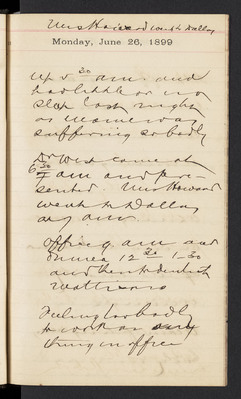 Mrs Howard went to Dallas
Monday, June 26, 1899
up 5 30 am and
had little or no
sleep last night
as mamie was
suffering so badly
Dr West came at
6 30 am and pre-
sented. Mrs Howard
went to Dallas
at 7 am
Office 9 am and
Dinner 12 30 1-30
and then to dentist
Feeling too badly
to work or any
thing in office